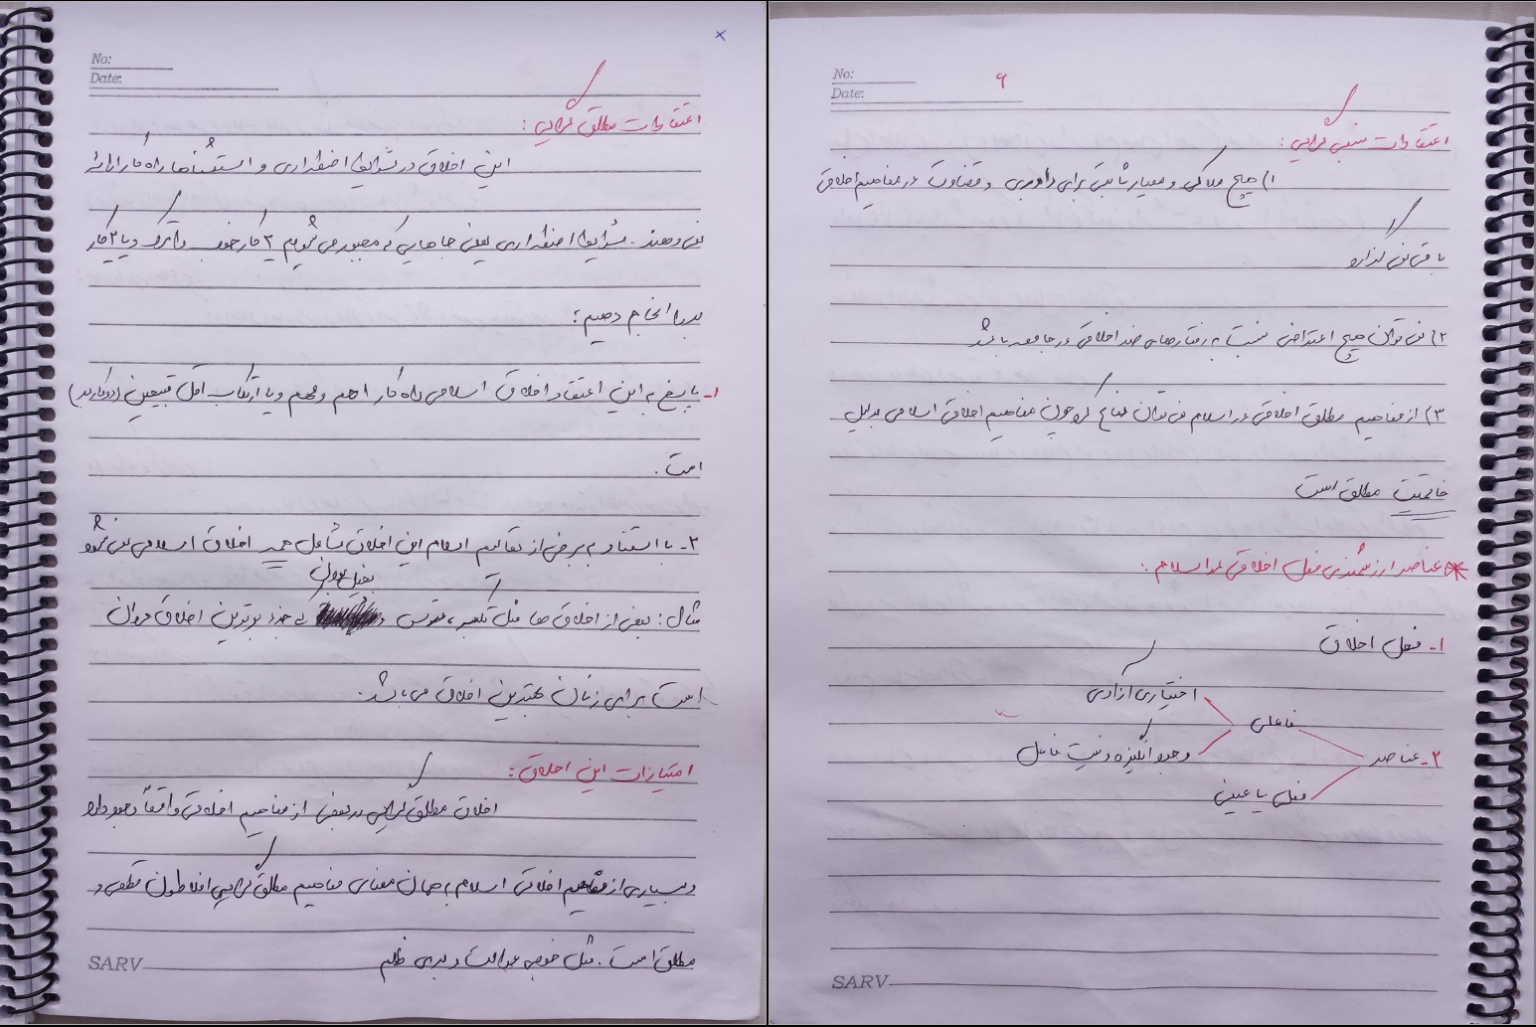 No:
Date:
اعتقادات مطلق گرایی:
این اخلاق در شرایط اضطراری و استثناها راه کار ارائه
نمی دهند. شرایط اضطراری یعنی جاهایی که مجبور می شویم ۲ کار خوب را ترک و یا ۲ کار
بد را انجام دهیم؛
۱- پاسخ به این اعتقاد اخلاق اسلامی راه کار اهم و مهم و یا ارتکاب اقل قبیحین (دو کار بد)
است.
۲- با استناد به برخی از تعالیم اسلام این اخلاق شامل همه اخلاق اسلامی نمی شود
بخیل بودن
مثال: بعضی از اخلاق ها مثل تکبر، ترس و که جزء بدترین اخلاق مردان
است برای زنان بهترین اخلاق می باشد.
امتیازات این اخلاق:
اخلاق مطلق گرایی در بعضی از مفاهیم اخلاقی واقعاً وجود دارد
و بسیاری از مفاهیم اخلاقی اسلام به همان معنای مفاهیم مطلق گرایی افلاطون قطعی و
مطلق است. مثل خوبی عدالت و بدی ظلم
SARV
No:
Date:
۶
اعتقادات نسبی گرایی:
۱) هیچ ملاکی و معیار ثابتی برای داوری و قضاوت در مفاهیم اخلاقی
باقی نمی گذارد
۲) نمی توان هیچ اعتراضی نسبت به رفتارهای ضد اخلاقی در جامعه باشد
۳) از مفاهیم مطلق اخلاقی در اسلام نمی توان دفاع کرد چون مفاهیم اخلاق اسلامی بدلیل
خاتمیت مطلق است
* عناصر ارزشمندی فعل اخلاقی در اسلام:
۱- فعل اخلاق
اختیاری آزادی
فاعلی
وجود انگیزه و نیت فاعل
۲- عناصر
فعلی یا عینی
SARV